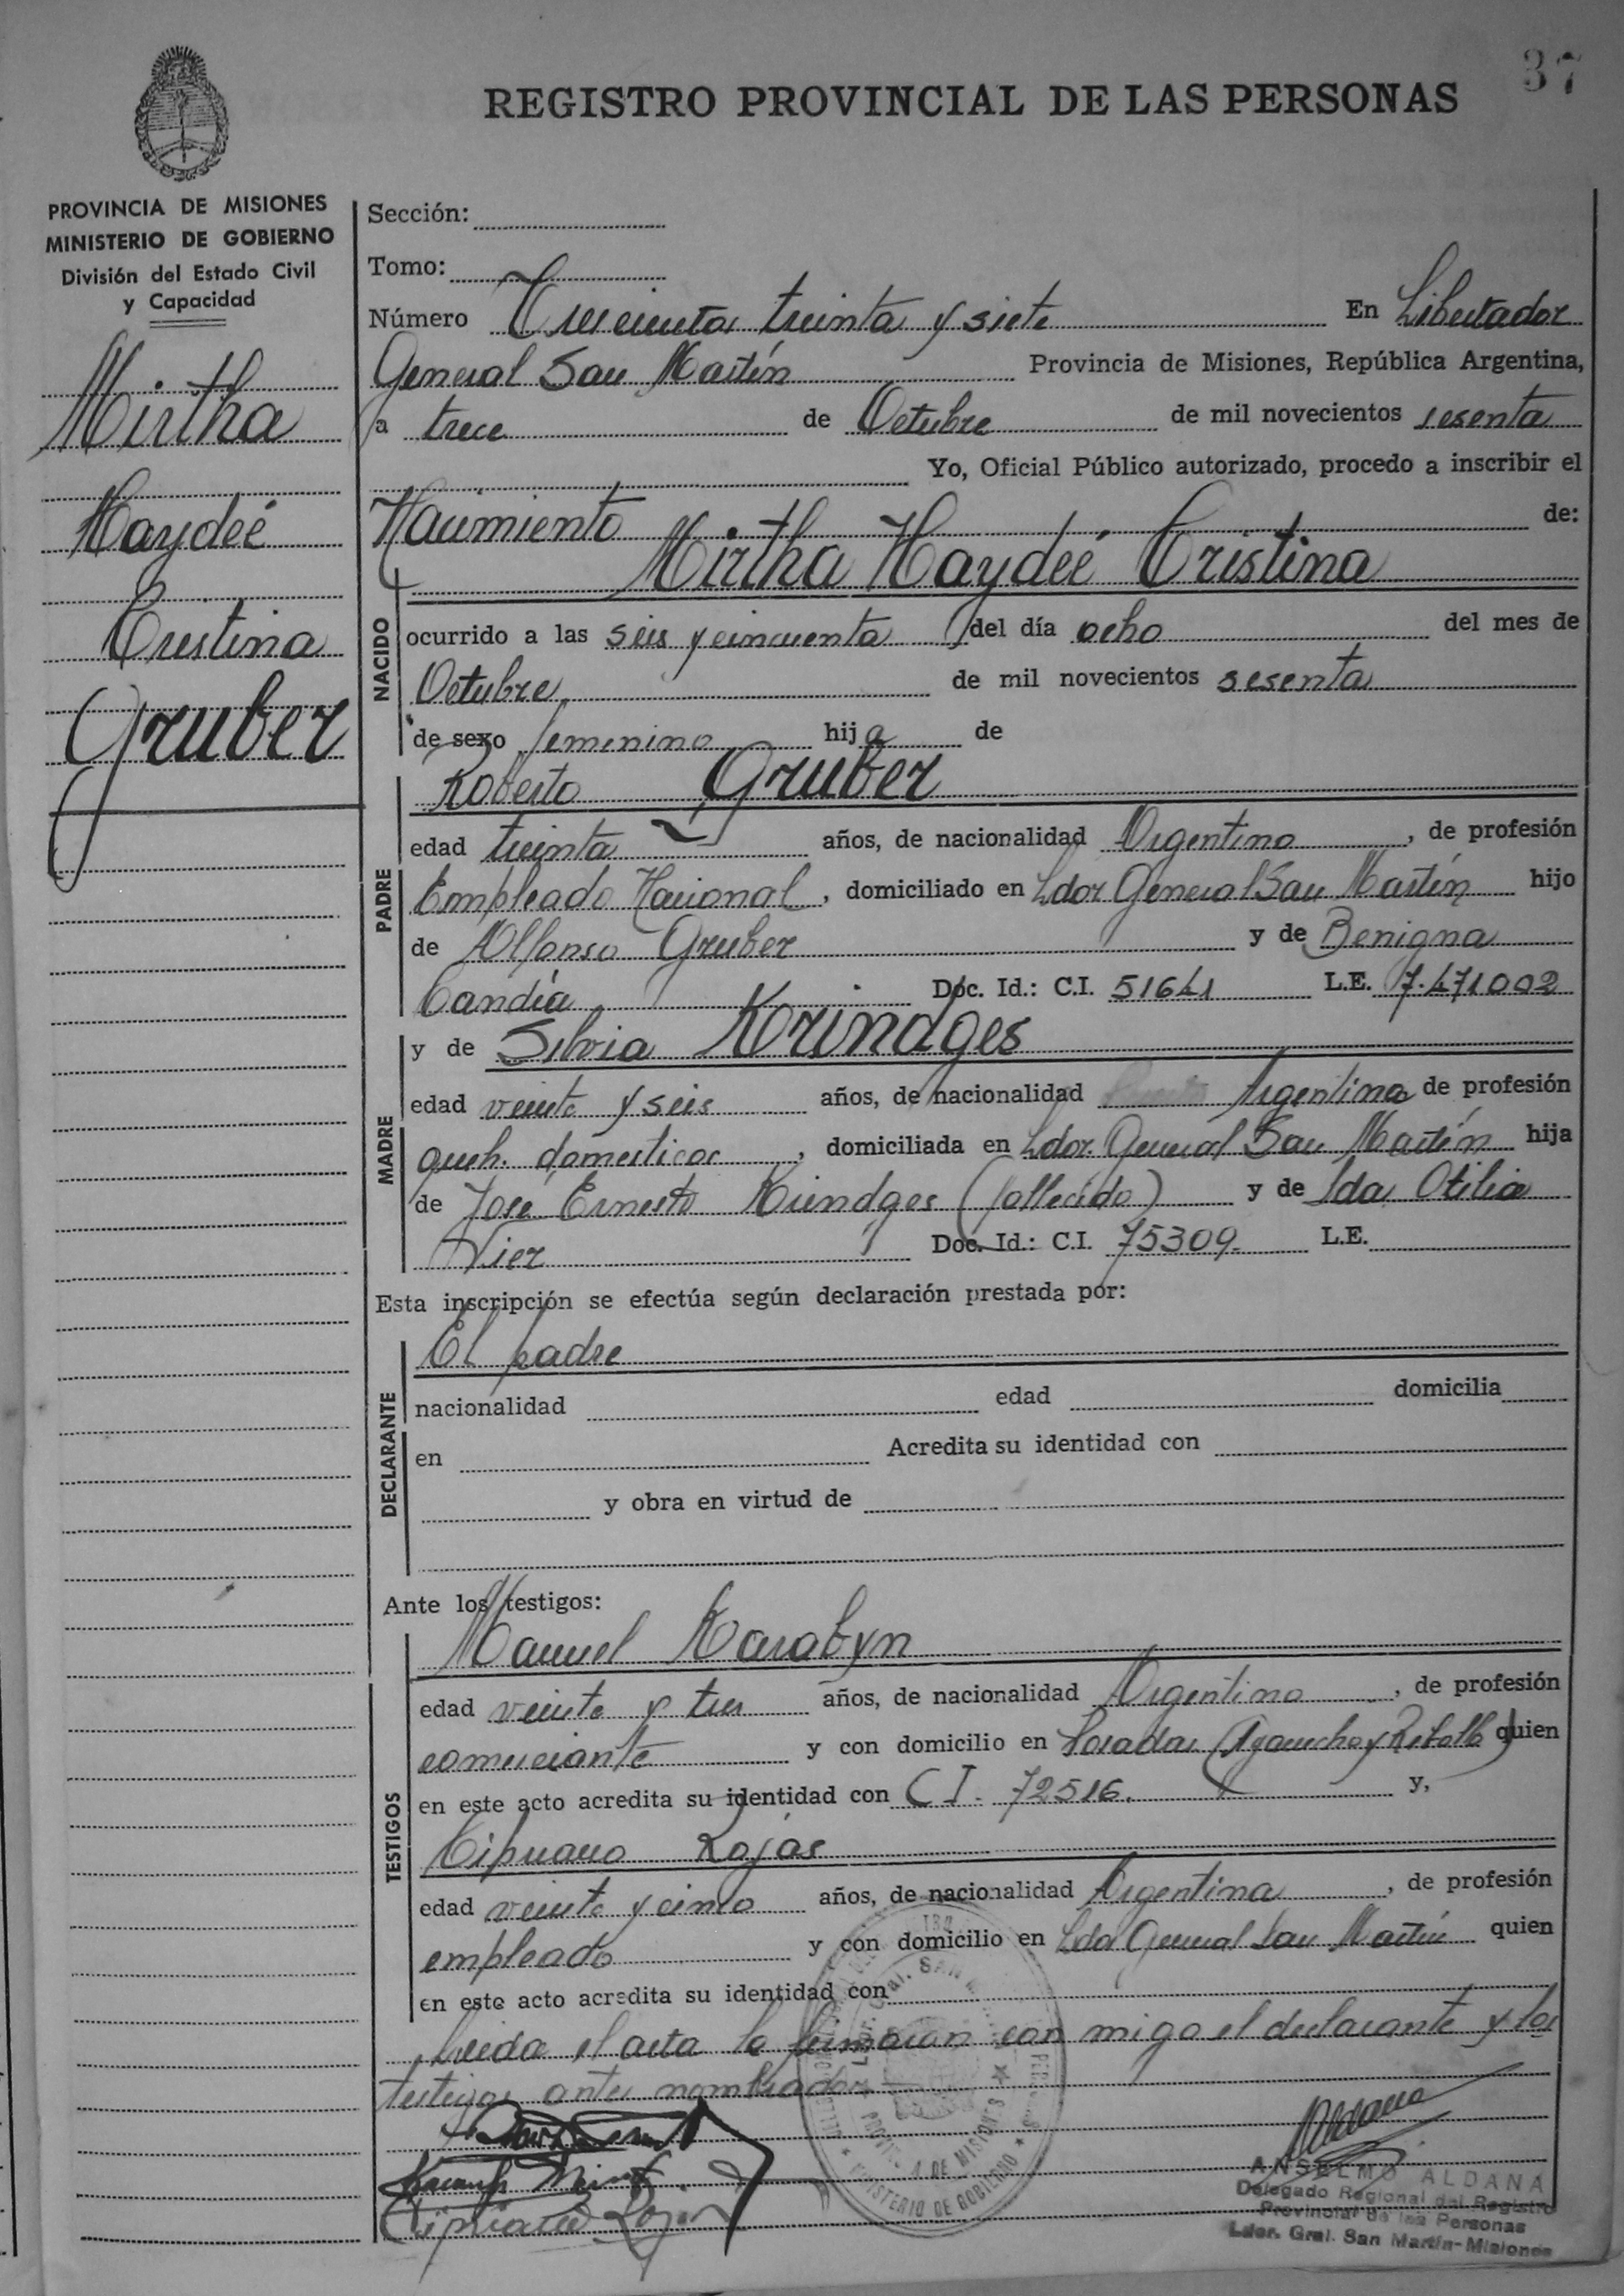 37
REGISTRO PROVINCIAL DE LAS PERSONAS
PROVINCIA DE MISIONES
MINISTERIO DE GOBIERNO
División del Estado Civil
y Capacidad
Mirtha
Haydeé
Cristina
Gruber
Sección:
Tomo:
Número Trescientos treinta y siete En Libertador
General San Martín Provincia de Misiones, República Argentina,
a trece de Octubre de mil novecientos sesenta
Yo, Oficial Público autorizado, procedo a inscribir el
Nacimiento de:
Mirtha Haydeé Cristina
NACIDO
ocurrido a las seis y cincuenta del día ocho del mes de
Octubre de mil novecientos sesenta
de sexo femenino hija de
PADRE
Roberto Gruber
edad treinta años, de nacionalidad Argentino, de profesión
Empleado Nacional, domiciliado en Ldor General San Martín hijo
de Alfonso Gruber y de Benigna
Candía Doc. Id.: C.I. 51641 L.E. 7.471002
MADRE
y de Silvia Krindges
edad veinte y seis años, de nacionalidad Argentina de profesión
queh. domesticos, domiciliada en Ldor. General San Martín hija
de Jose Ernesto Krindges (fallecido) y de Ida Otilia
Vier Doc. Id.: C.I. 75309. L.E.
Esta inscripción se efectúa según declaración prestada por:
DECLARANTE
El padre
nacionalidad edad domicilia
en Acredita su identidad con
y obra en virtud de
Ante los testigos:
TESTIGOS
Manuel Karabyn
edad veinte y tres años, de nacionalidad Argentino, de profesión
comerciante y con domicilio en Posadas (Ayacucho y ) quien
en este acto acredita su identidad con C I. 72516. y,
Cipriano Rojas
edad veinte y cinco años, de nacionalidad Argentina, de profesión
empleado y con domicilio en Ldor General San Martín quien
en este acto acredita su identidad con
Leida el acta la firmaron con migo el declarante y los
testigos antes nombrados
Cipriano Rojas
Aldana
ANSELMO ALDANA
Delegado Regional del Registro
Provincial de las Personas
Ldor. Gral. San Martín-Misiones
MINISTERIO DE GOBIERNO